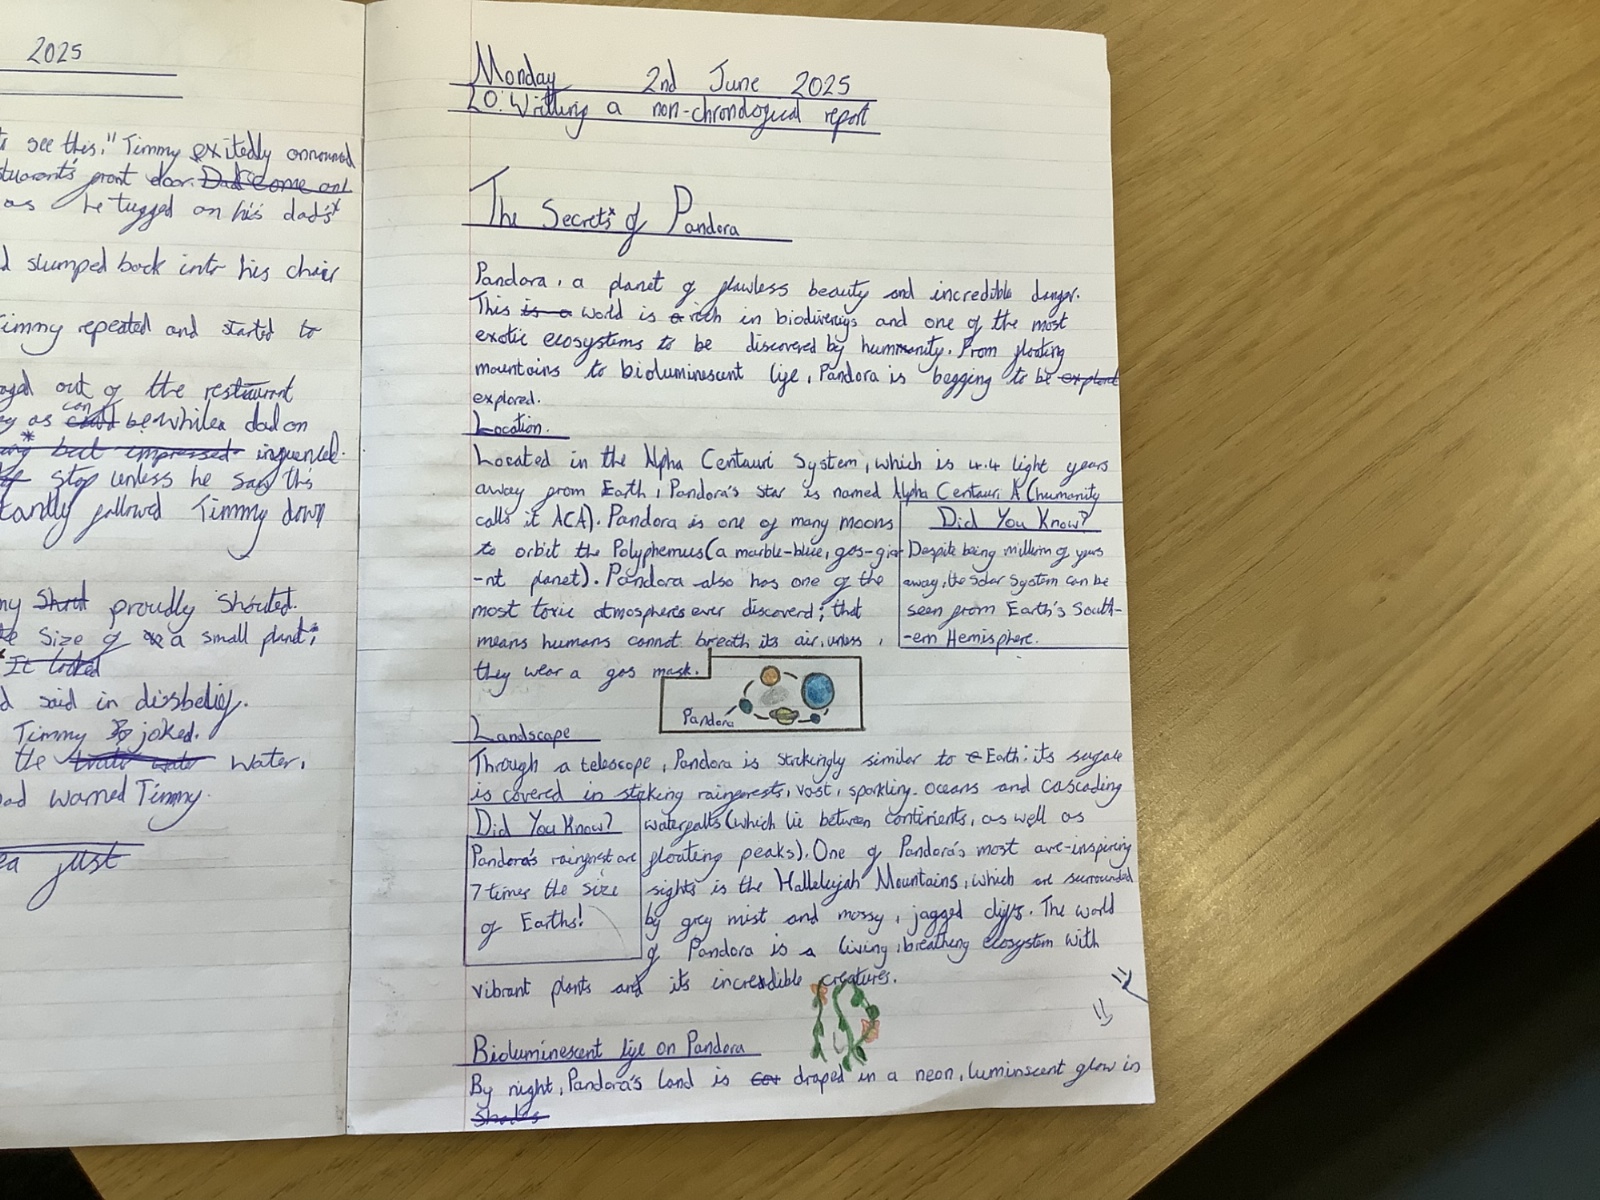 2025
see this," Timmy exitedly announced
front door. Dad come and
as he tugged on his dad's
slumped back into his chair
Timmy repeated and started to
out of the restaurant
as can could be while dad on
but impressed influenced.
stop unless he saw this
followed Timmy down
Shout proudly shouted.
Size of a small plant;
It looked
said in dissbelief.
Timmy joked.
the water water water,
warned Timmy.
just
Monday 2nd June 2025
LO: Writting a non-chronological report
The Secrets of Pandora
Pandora, a planet of flawless beauty and incredible danger.
This is a world is a rich in and one of the most
exotic ecosystems to be discovered by hummanity. From floating
mountains to bioluminescent life, Pandora is begging to be explored
explored.
Location.
Located in the Alpha Centauri System, which is 4.4 light years
away from Earth, Pandora's star is named Alpha Centauri A (humanity
calls it ACA). Pandora is one of many moons
to orbit the Polyphemus (a marble-blue, gas-gia-
-nt planet). Pandora also has one of the
most toxic atmospheres ever discoverd; that
means humans cannot breath its air, unless,
they wear a gas mask.
Did You Know?
Despite being million of years
away, the Solar System can be
seen from Earth's South-
-ern Hemisphere.
Pandora
Landscape
Through a telescope, Pandora is strikingly similar to e Earth: its surface
is covered in striking rainforests, vast, sparkling oceans and cascading
waterfalls (which lie between continents, as well as
floating peaks). One of Pandora's most awe-inspiring
sights is the Hallelujah Mountains, which are surrounded
by grey mist and mossy, jagged cliffs. The world
of Pandora is a living, breathing ecosystem with
vibrant plants and its incredible creatures.
Did You Know?
Pandora's rainforest are
7 times the size
of Earths!
Bioluminescent life on Pandora
By night, Pandora's land is draped in a neon, luminscent glow in
Shades